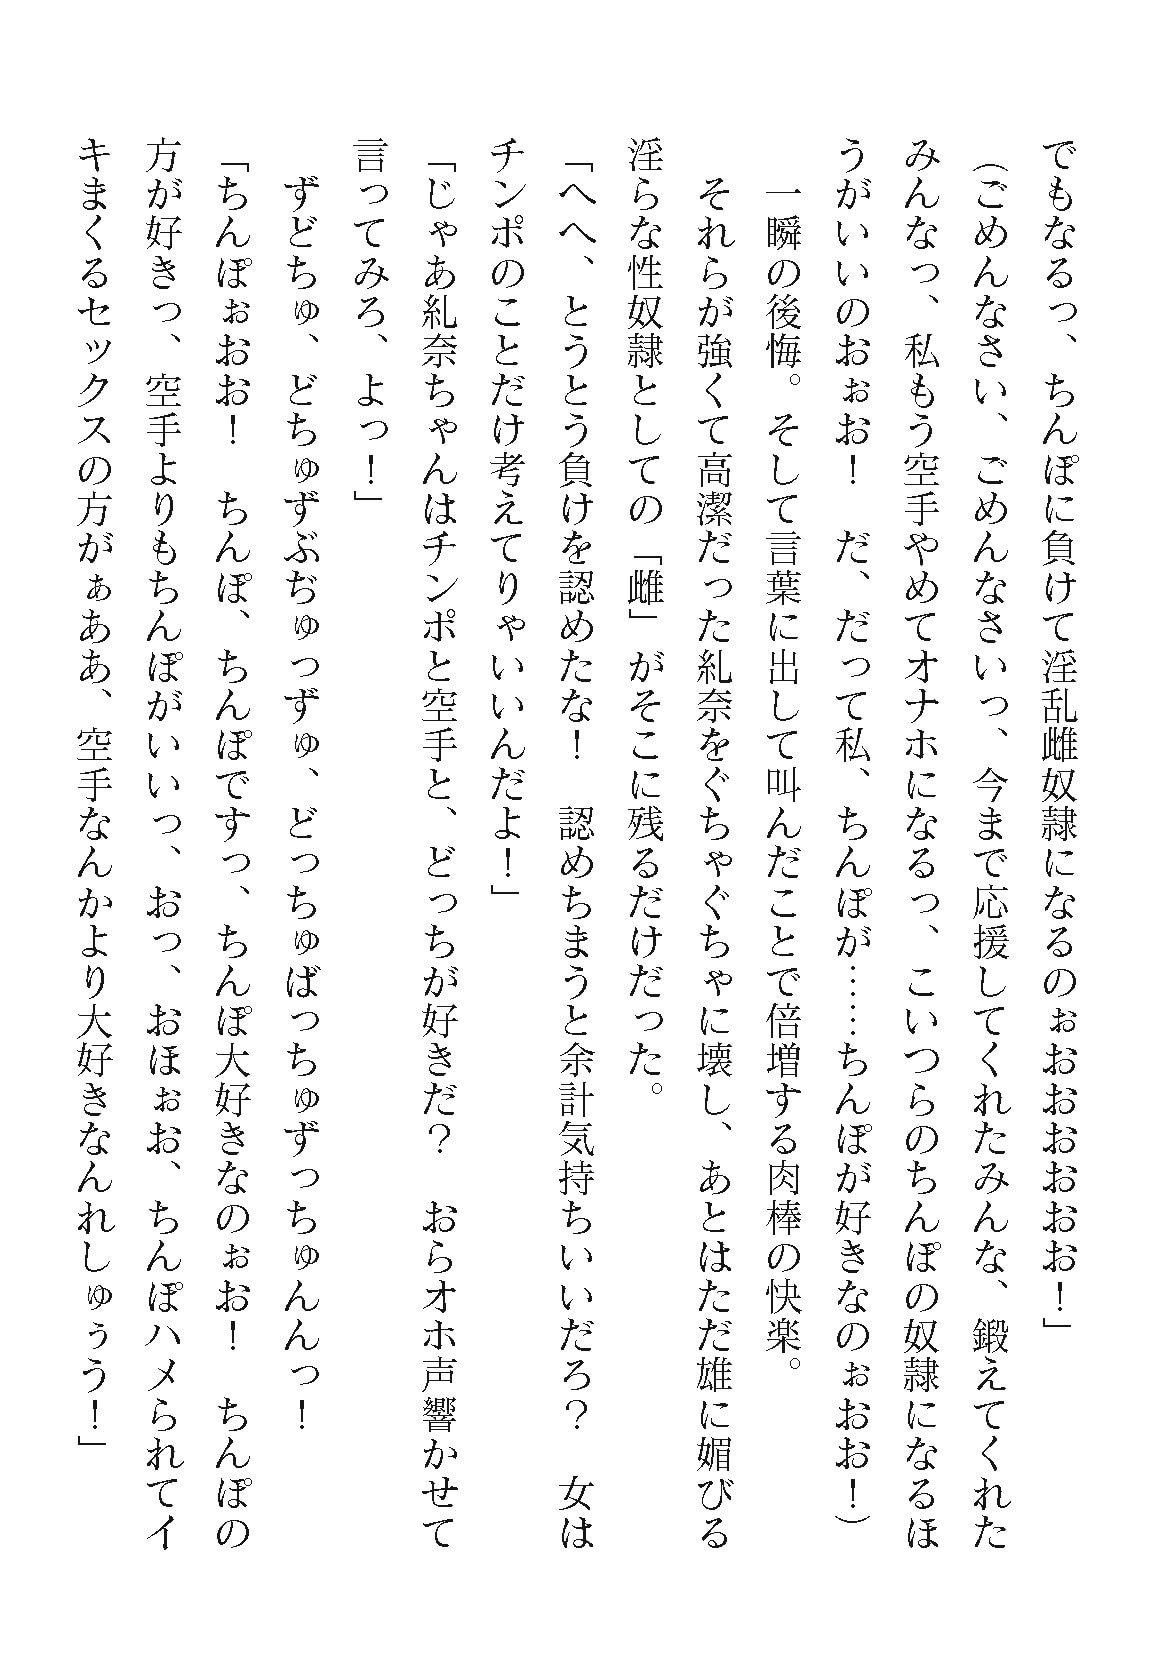 でもなるっ、ちんぽに負けて淫乱雌奴隷になるのぉおおおおおお！」
（ごめんなさい、ごめんなさいっ、今まで応援してくれたみんな、鍛えてくれた
みんなっ、私もう空手やめてオナホになるっ、こいつらのちんぽの奴隷になるほ
うがいいのおぉお！　だ、だって私、ちんぽが……ちんぽが好きなのぉおお！）
　一瞬の後悔。そして言葉に出して叫んだことで倍増する肉棒の快楽。
　それらが強くて高潔だった糺奈をぐちゃぐちゃに壊し、あとはただ雄に媚びる
淫らな性奴隷としての「雌」がそこに残るだけだった。
「へへ、とうとう負けを認めたな！　認めちまうと余計気持ちいいだろ？　女は
チンポのことだけ考えてりゃいいんだよ！」
「じゃあ糺奈ちゃんはチンポと空手と、どっちが好きだ？　おらオホ声響かせて
言ってみろ、よっ！」
　ずどちゅ、どちゅずぶぢゅっずゅ、どっちゅばっちゅずっちゅんんっ！
「ちんぽぉおお！　ちんぽ、ちんぽですっ、ちんぽ大好きなのぉお！　ちんぽの
方が好きっ、空手よりもちんぽがいいっ、おっ、おほぉお、ちんぽハメられてイ
キまくるセックスの方がぁああ、空手なんかより大好きなんれしゅぅう！」